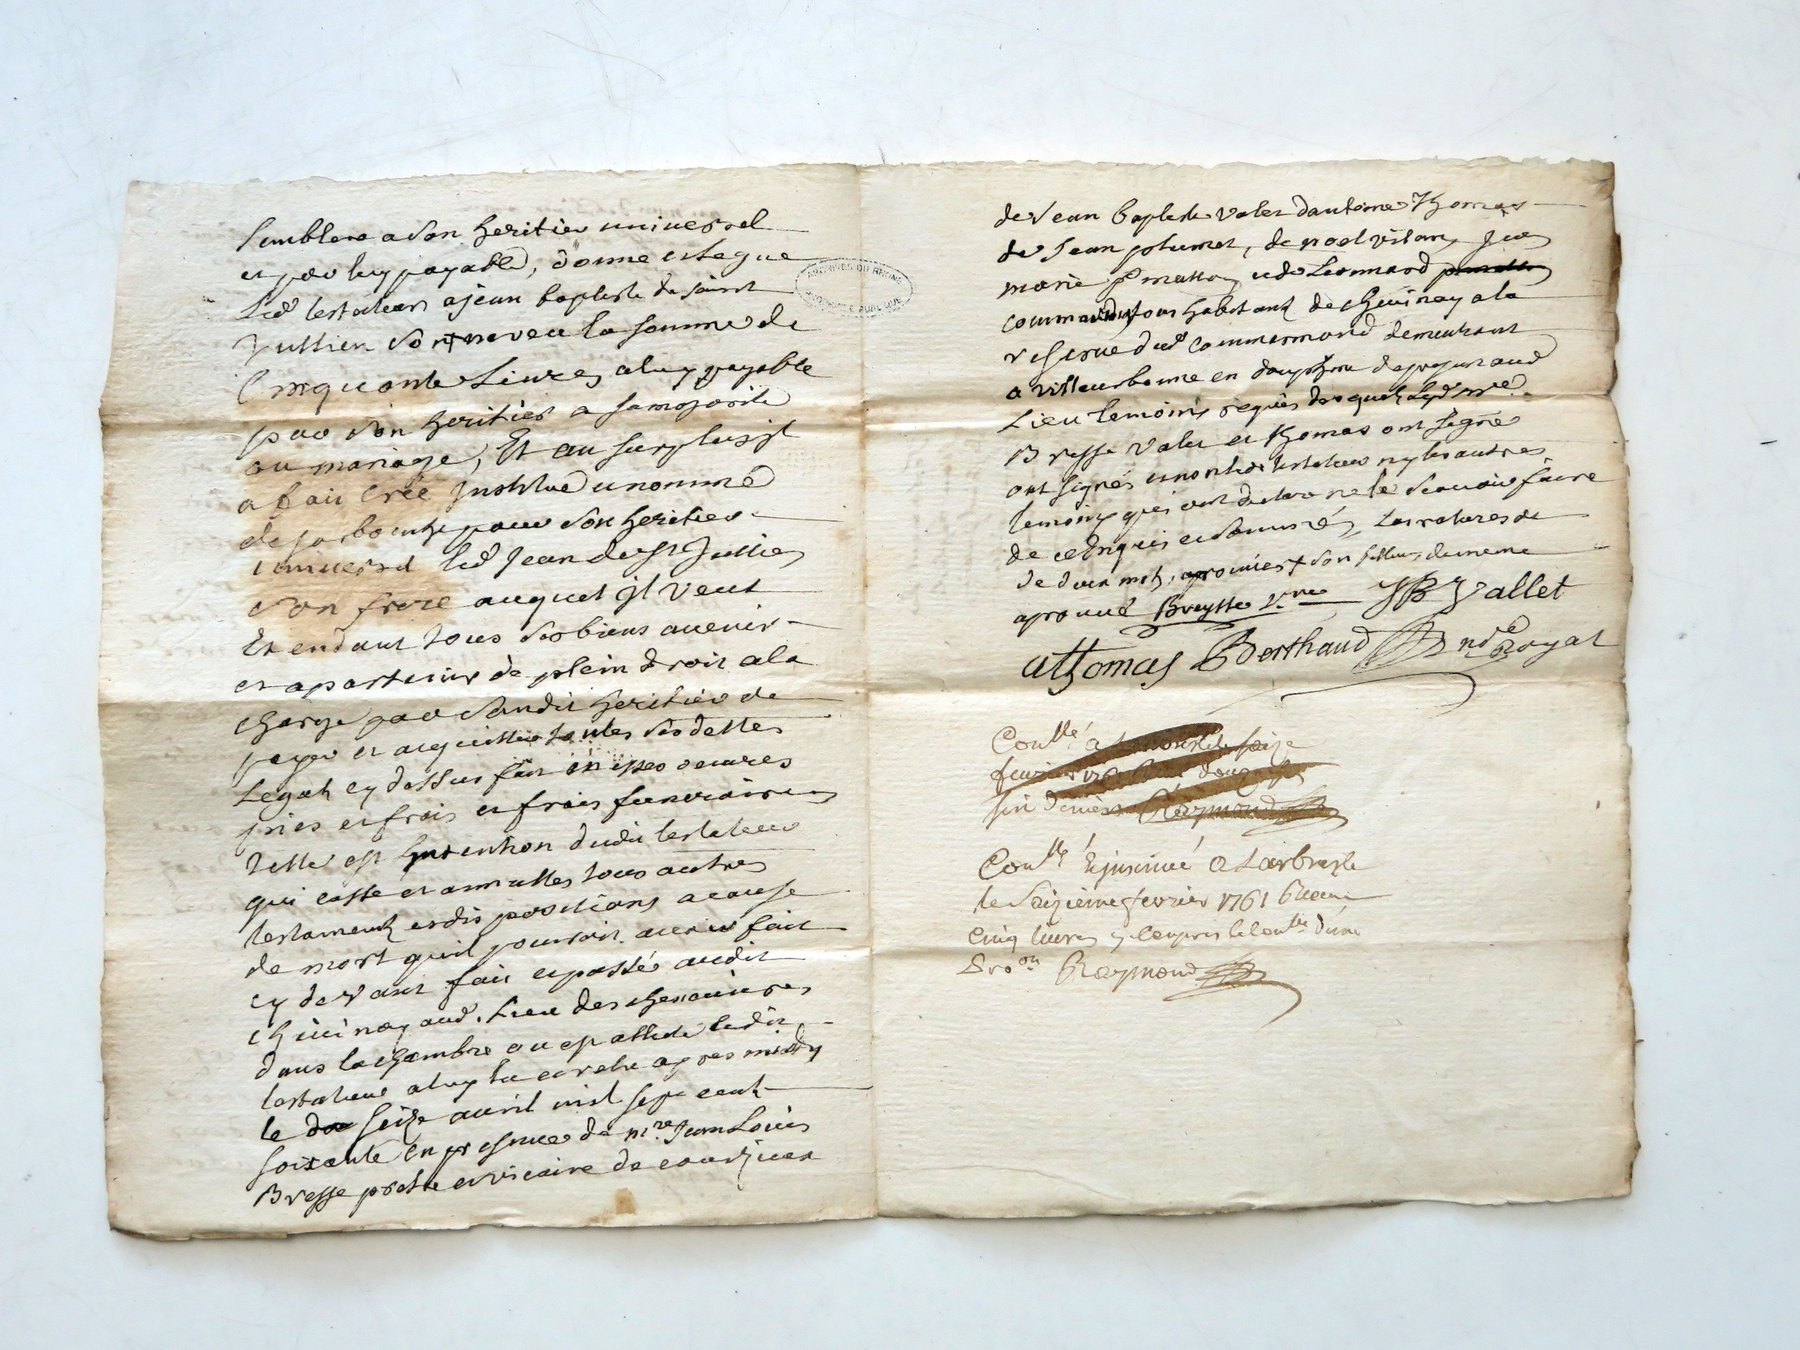 semblera a son heritier universel
et par luy payable, donne et legue
led testateur a jean baptiste de saint
Jullien son neveu la somme de
Cinquante Livres a luy payable
par son heritier a sa majorité
ou mariage, Et au surplus jl
a fait Créé Jnstitué et nommé
de sa bouche pour son heritier
universel led Jean de St Jullien
son frere auquel jl veut
Et entend tous ses biens avenir
et apartenir de plein droit a la
charge par sondit heritier de
payer et acquitter toutes ses dettes
Legats cy dessus fait oeuvres
pies et frais et frais funeraires
telle est Lintention dudit testateur
qui casse et annulles tous autres
testaments et dispositions a cause
de mort quil pourroit avoir fait
cy devant fait et passé audit
chevinay aud. Lieu des
dans la chambre ou est allité ledit
testateur a luy lu et relu apres midy
le seize avril mil sept cent
soixante en presence de mre Jean Louis
Bresse pretre et vicaire de courzieu
de Jean baptiste valet dantoine Thomas
de Jean plumet, de noel vilan,
marie matton et de Leonnard
tous habitants de chevinay a la
reserve dud Commarmond demeurant
a villeurbanne en dauphiné de present aud
Lieu temoins requis desquels led mre
Bresse valet et thomas ont signé
ont signés et non led testateur ny les autres
temoins qui ont declaré ne le scavoir faire
de ce enquis et sommés, Les ratures de
de deux mots, aprouvées + son de meme
aprouvé Breysse vre JB Vallet
AThomas Berthaud ndre Royal
Conllé a Larbresle seize
fevrier 1761 Reçu douze sols
six deniers Raymond
Conllé et jnsinué a Larbresle
le seizieme fevrier 1761 Reçu
cinq livres y compris le centie dune
Raymond
ARCHIVES DU RHONE